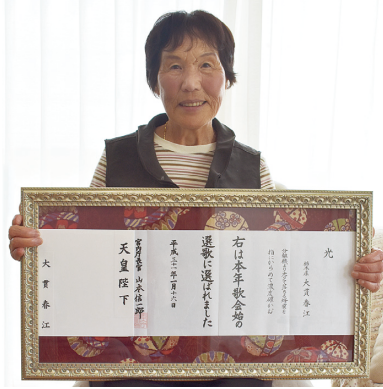 光
栃木県 大貫春江
右は本年歌会始の
選歌に選ばれました
平成三十一年一月十六日
宮内庁長官 山本信一郎
天皇陛下
大貫春江